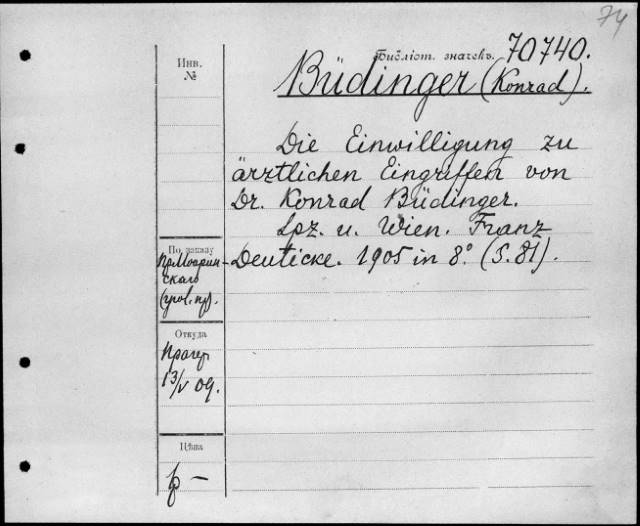 74
Инв.
№
Библіот. значекъ. 70740.
Büdinger (Konrad).
Die Einwilligung zu
ärztlichen Eingriffen von
Dr. Konrad Büdinger.
Lpz. u. Wien. Franz
Deuticke. 1905 in 8°. (S. 81).
По заказу
скаго
Откуда
13/V 09.
Цѣна
р –